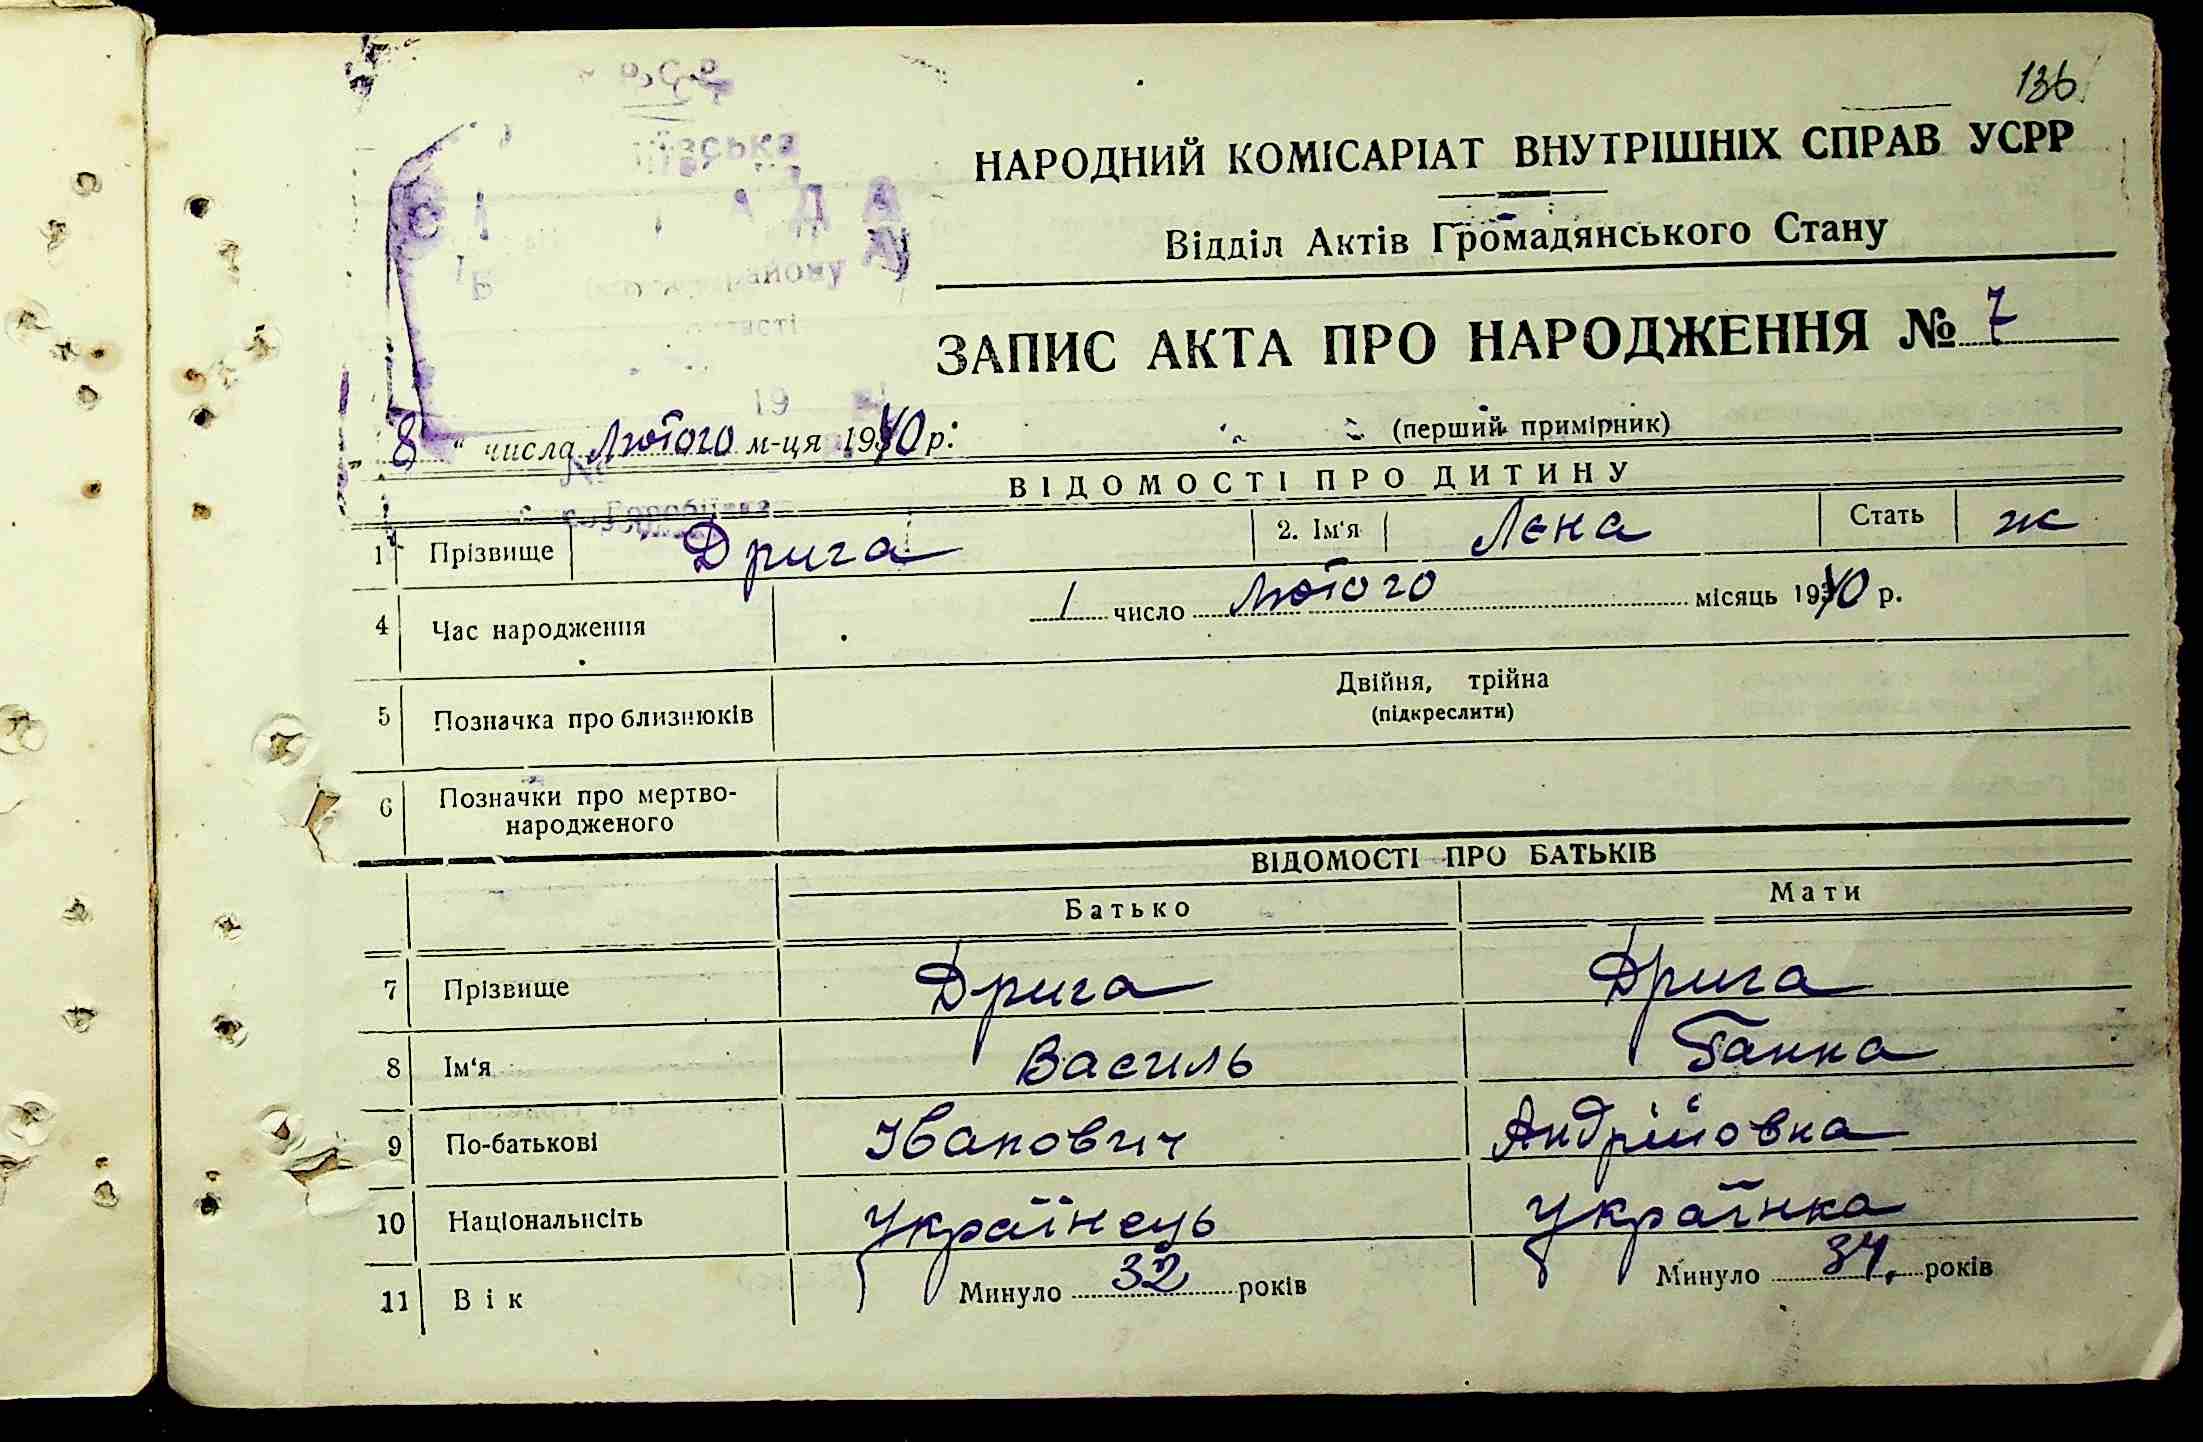 136
НАРОДНИЙ КОМІСАРІАТ ВНУТРІШНІХ СПРАВ УСРР
Відділ Актів Громадянського Стану
району
ЗАПИС АКТА ПРО НАРОДЖЕННЯ № 7
19
„ 8 “ числа Лютого м-ця 1940 р.
(перший примірник)
ВІДОМОСТІ ПРО ДИТИНУ
1 Прізвище Дрига 2. Ім'я Лєна Стать ж
4 Час народження 1 число Лютого місяць 1940 р.
5 Позначка про близнюків Двійня, трійна
(підкреслити)
6 Позначки про мертво-
народженого
ВІДОМОСТІ ПРО БАТЬКІВ
Батько Мати
7 Прізвище Дрига Дрига
8 Ім'я Василь Ганна
9 По-батькові Іванович Андрійовна
10 Національність Українець Українка
11 Вік Минуло 32 років Минуло 34 років